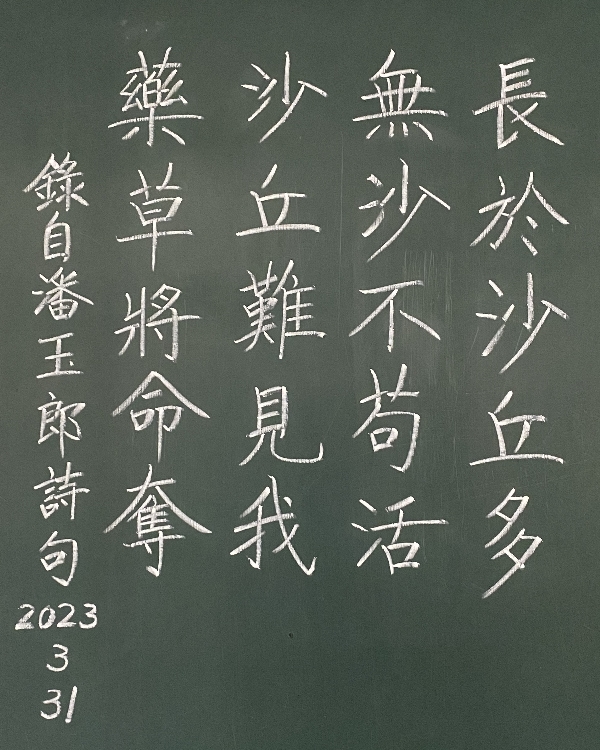 長於沙丘多
無沙不苟活
沙丘難見我
藥草將命奪
錄自潘玉郎詩句
2023
3
31